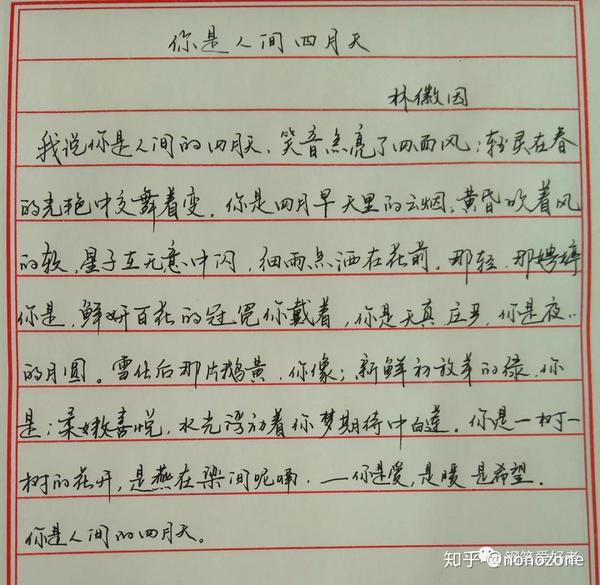 你是人间四月天
林徽因
我说你是人间的四月天、笑音点亮了四面风；轻灵在春
的光艳中交舞着变。你是四月早天里的云烟，黄昏吹着风
的软，星子在无意中闪，细雨点洒在花前。那轻，那娉婷
你是，鲜妍百花的冠冕你戴着，你是天真庄严，你是夜夜
的月圆。雪化后那片鹅黄，你像；新鲜初放芽的绿，你
是；柔嫩喜悦，水光浮动着你梦期待中白莲。你是一树一
树的花开，是燕在梁间呢喃，—你是爱，是暖 是希望。
你是人间的四月天。
钢笔爱好者
知乎 @nonozone